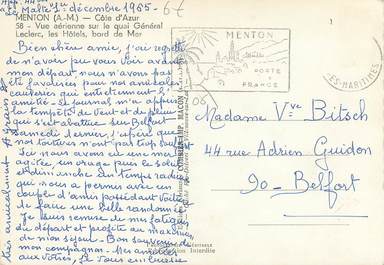 La Malte 1er décembre 1965 -
MENTON (A.-M.) — Côte d'Azur
58 - Vue aérienne sur le quai Général
Leclerc, les Hôtels, bord de Mer
Bien chère amie, j'ai regretté
de n'avoir pu vous voir avant
mon départ nous n'avons pas
été favorisées pour nos amicales
causeries qui entretiennent l'
amitié - Le journal m'a appris
la tempête de vent et de pluie
qui s'est abattue sur Belfort
samedi dernier. J'espère que
nos toitures n'ont pas trop souffert
Ici nous avons eu une mer
agitée, un orage puis le soleil
et dimanche un temps radieux
qui nous a permis avec un
couple d'amis possédant voiture
de faire une belle randonnée
Je suis remise de mes fatigues
du départ et profite au maximum
de mon séjour. Bon souvenir de
mon compagnon. Mes amitiés
aux vôtres, je vous embrasse
très amicalement
MENTON
PORTE
FRANCE
ES-MARITIMES
06
MACON
Madame Vve Bitsch
44 rue Adrien Guidon
90 - Belfort
Interdite
67